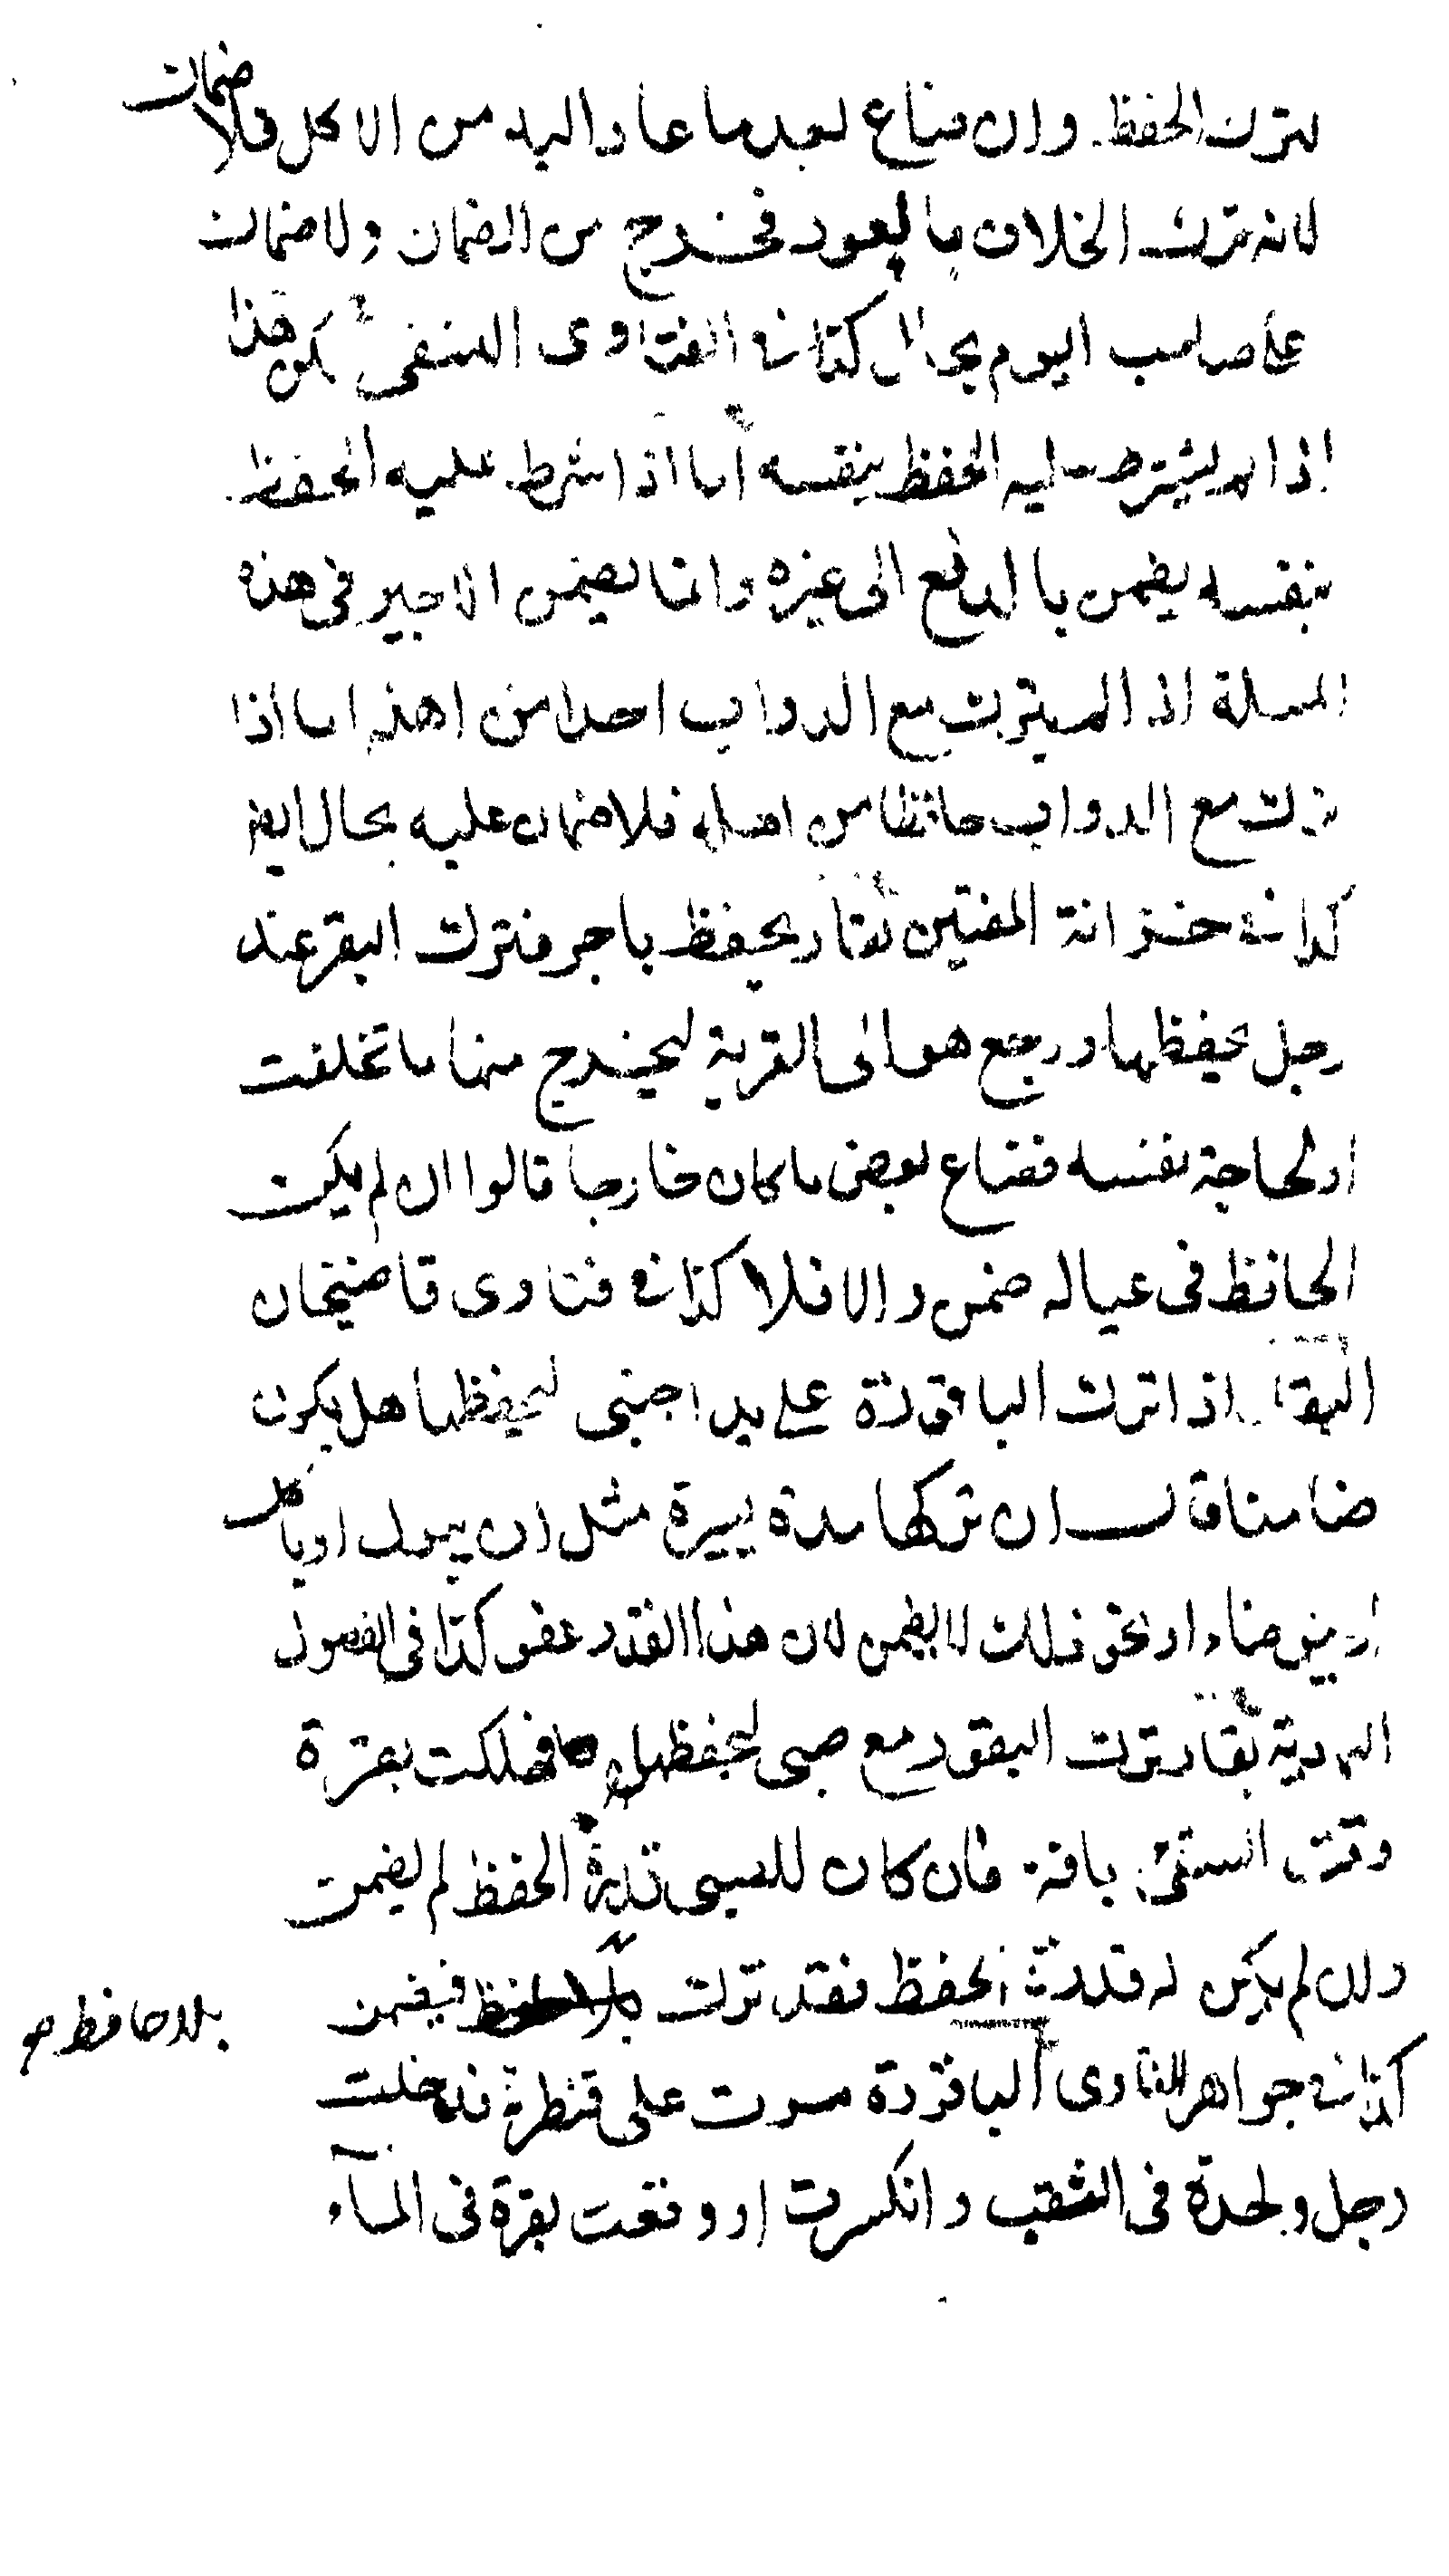 لترك الحفظ وان ضاع بعد ما عاد اليه من الاكل فلا ضمان
لانه ترك الخلاف بالعود فخرج من الضمان ولا ضمان
على صاحب اليوم بحال كذا في الفتاوى النسفي لكن هذا
إذا لم يشترط عليه الحفظ بنفسه أما اذا شرط عليه الحفظ
بنفسه يضمن بالدفع الى غيره وانما يضمن الاجير في هذه
المسئلة اذا لم يترك مع الدواب احدا من اهله اما اذا
ترك مع الدواب حافظا من اهله فلا ضمان عليه بحال ايضا
كذا في خزانة المفتين بقار يحفظ باجر فترك البقر عند
رجل يحفظها ورجع هو الى القرية ليخرج منها ما تخلفت
او لحاجة نفسه فضاع بعض ما كان خارجا قالوا ان لم يكن
الحافظ في عياله ضمن والا فلا كذا في فتاوى قاضيخان
البقار اذا ترك الباقورة على يد اجنبي ليحفظها هل يكون
ضامنا قال ان تركها مدة يسيرة مثل ان يبول او يأكل
او يتوضاء او نحو ذلك لا يضمن لان هذا القدر عفو كذا في الفصول
العمادية بقار ترك البقور مع صبي ليحفظها فهلكت بقرة
وقت السقي بافة فان كان للصبي قدرة الحفظ لم يضمن
وان لم يكن له قدرة الحفظ فقد ترك فيضمن
بلا حافظ صح
كذا في جواهر الفتاوى الباقورة مرت على قنطرة فدخلت
رجل واحدة في الثقب وانكسرت او وقعت بقرة في المآء